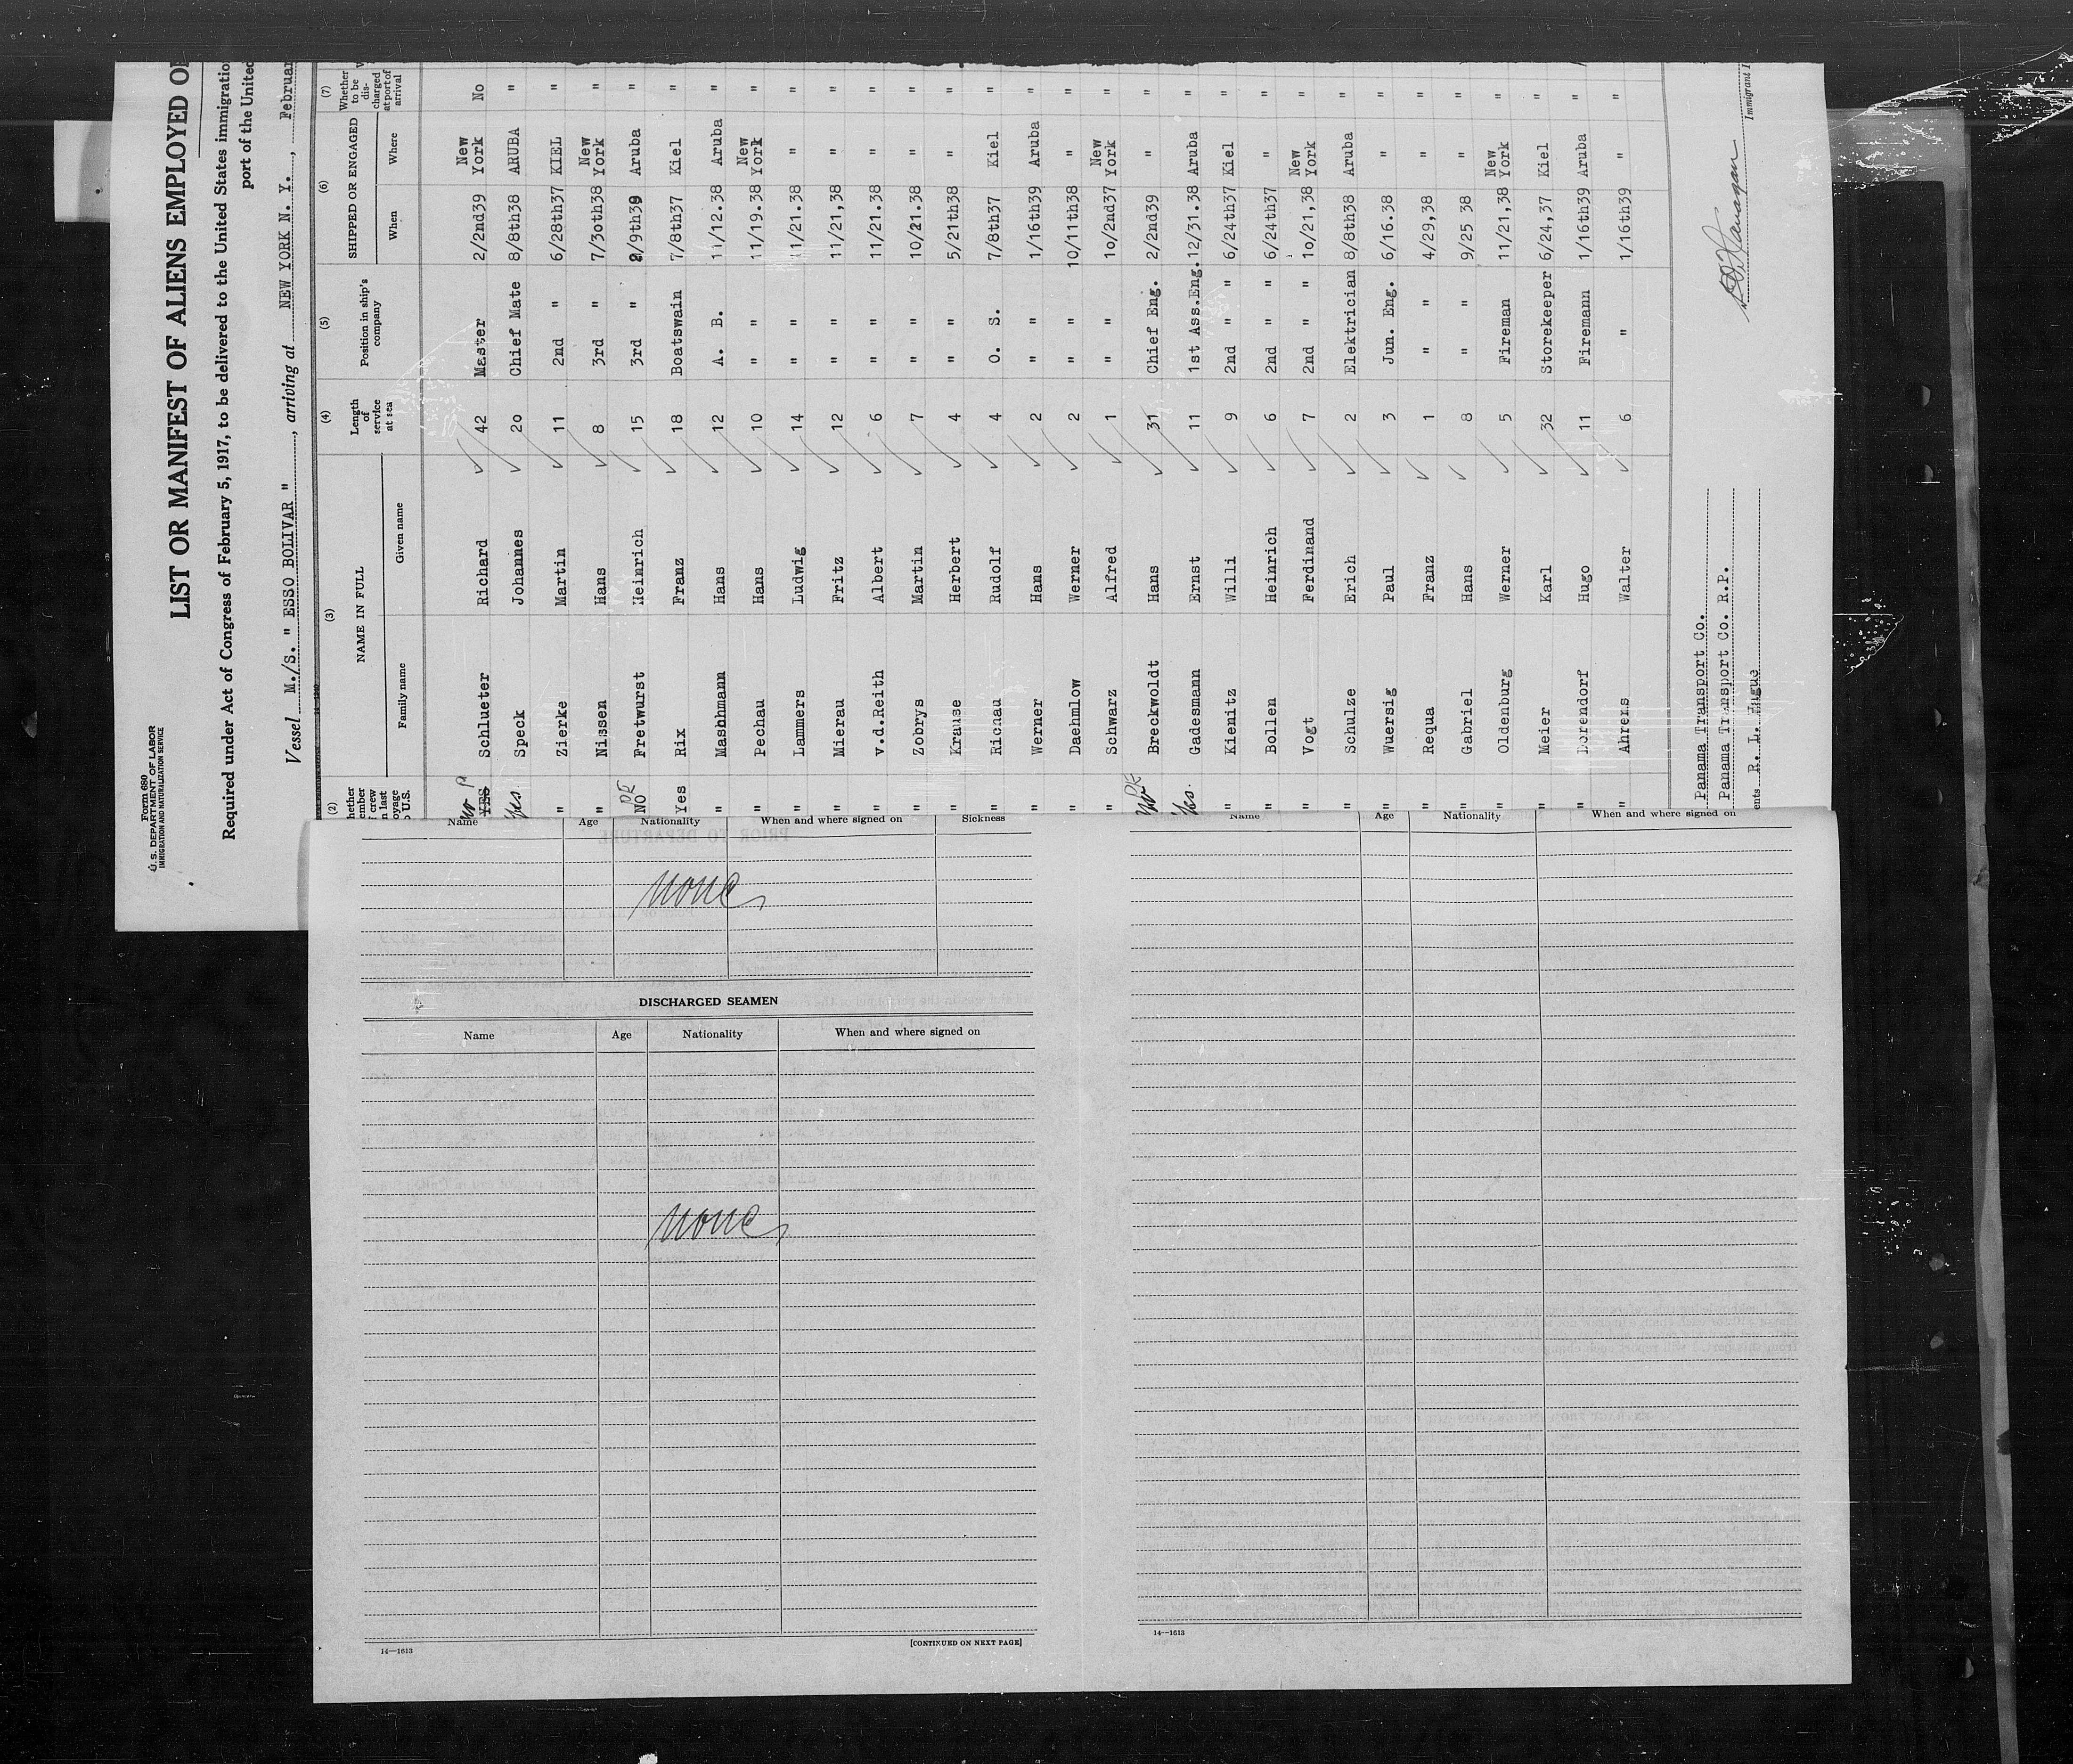 Form 680
U.S. DEPARTMENT OF LABOR
IMMIGRATION AND NATURALIZATION SERVICE
LIST OR MANIFEST OF ALIENS EMPLOYED O
Required under Act of Congress of February 5, 1917, to be delivered to the United States immigratio
port of the United
Vessel M./S. " ESSO BOLIVAR " , arriving at NEW YORK N. Y. , Februar
(2) (3) (4) (5) (6) (7)
NAME IN FULL
Family name Given name
Length of service at sea
Position in ship's company
SHIPPED OR ENGAGED
When Where
Whether to be dis- charged at port of arrival
No YES Schlueter Richard 42 Master 2/2nd39 New York No
Yes Speck Johannes 20 Chief Mate 8/8th38 ARUBA "
" Zierke Martin 11 2nd " 6/28th37 KIEL "
" Nissen Hans 8 3rd " 7/30th38 New York "
NO Fretwurst Heinrich 15 3rd " 2/9th39 Aruba "
Yes Rix Franz 18 Boatswain 7/8th37 Kiel "
" Maashmann Hans 12 A. B. 11/12.38 Aruba "
" Pechau Hans 10 " " 11/19.38 New York "
" Lammers Ludwig 14 " " 11/21.38 " "
" Miereu Fritz 12 " " 11/21,38 " "
" v.d.Reith Albert 6 " " 11/21.38 " "
" Zobrys Martin 7 " " 10/21.38 " "
" Krause Herbert 4 " " 5/21th38 " "
" Richau Rudolf 4 O. S. 7/8th37 Kiel "
" Werner Hans 2 " " 1/16th39 Aruba "
" Daehmlow Werner 2 " " 10/11th38 " "
" Schwarz Alfred 1 " " 1o/2nd37 New York "
No Breckwoldt Hans 31 Chief Eng. 2/2nd39 " "
Yes. Gadesmann Ernst 11 1st Ass.Eng. 12/31.38 Aruba "
" Kienitz Willi 9 2nd " " 6/24th37 Kiel "
" Bollen Heinrich 6 2nd " " 6/24th37 " "
" Vogt Ferdinand 7 2nd " " 1o/21,38 New York "
" Schulze Erich 2 Elektrician 8/8th38 Aruba "
" Wuersig Paul 3 Jun. Eng. 6/16.38 " "
" Requa Franz 1 " " 4/29,38 " "
" Gabriel Hans 8 " " 9/25 38 " "
" Oldenburg Werner 5 Fireman 11/21,38 New York "
" Meier Karl 32 Storekeeper 6/24,37 Kiel "
" Dorendorf Hugo 11 Firemann 1/16th39 Aruba "
" Ahrens Walter 6 " 1/16th39 " "
Panama Transport Co.
Panama Transport Co. R.P.
ents R. L. Hague
Immigrant I
Name Age Nationality When and where signed on Sickness
none
DISCHARGED SEAMEN
Name Age Nationality When and where signed on
none
14—1613 [CONTINUED ON NEXT PAGE]
Name Age Nationality When and where signed on
14—1613